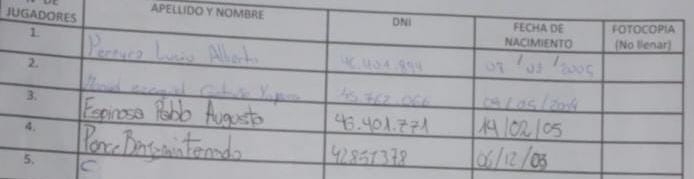 N° DE JUGADORES APELLIDO Y NOMBRE DNI FECHA DE NACIMIENTO FOTOCOPIA (No llenar)
1. Pereyra Lucio Alberto 46.401.894 07/03/2005
2. 45.762.066
3. Espinosa Pablo Augusto 46.401.771 14/02/05
4. Ponce 42851378 06/12/03
5. C